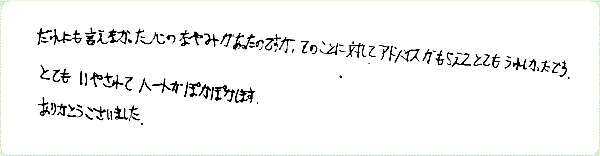 だれにも言えなかった心のなやみがあったのですが、そのことに対してアドバイスがもらえてとてもうれしかったです。
とても いやされて ハートがぽかぽかします.
ありがとうございました.